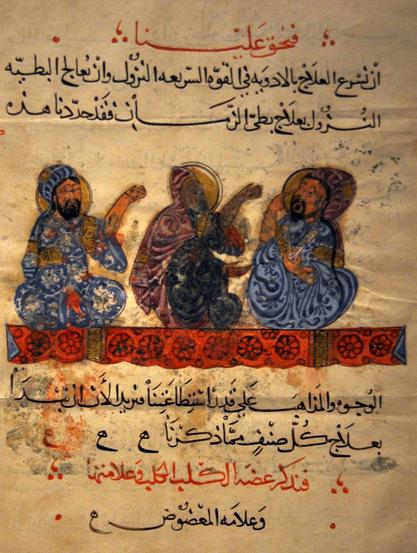 فيحق علينا
ان نسرع العلاج بالادويه في القوه السريعه النزول وان نعالج البطيه
النزول بعلاج بطي الزمان فقد حددنا هذه
الوجوه والمذاهب على قدر استطاعتنا ونريد الان ان نبدا
بعلاج كل صنف مما ذكرنا
فنذكر عضه الكلب الكلب وعلامتها
وعلامه المعضوض